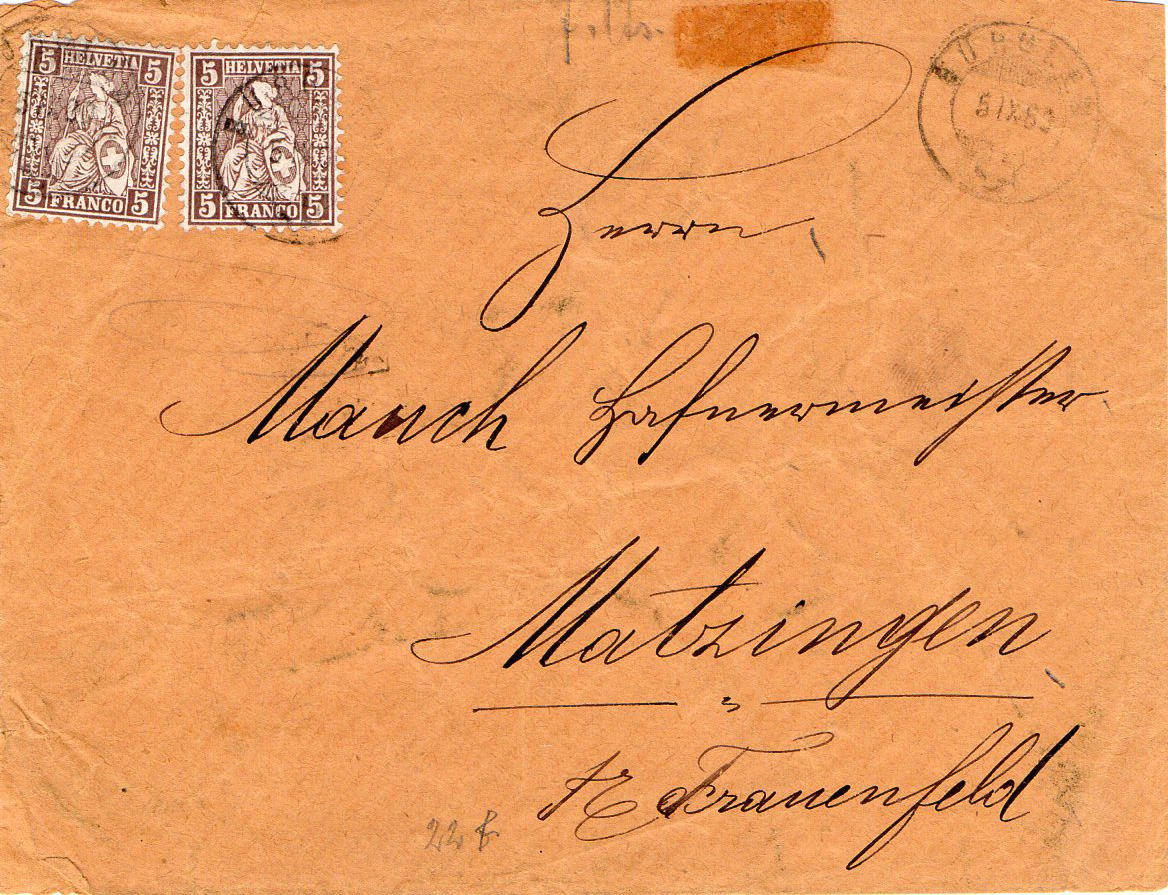 5 HELVETIA 5
5 FRANCO 5
5 HELVETIA 5
5 FRANCO 5
Herrn
Mauch Hafnermeister
Matzingen
Frauenfeld
22 f